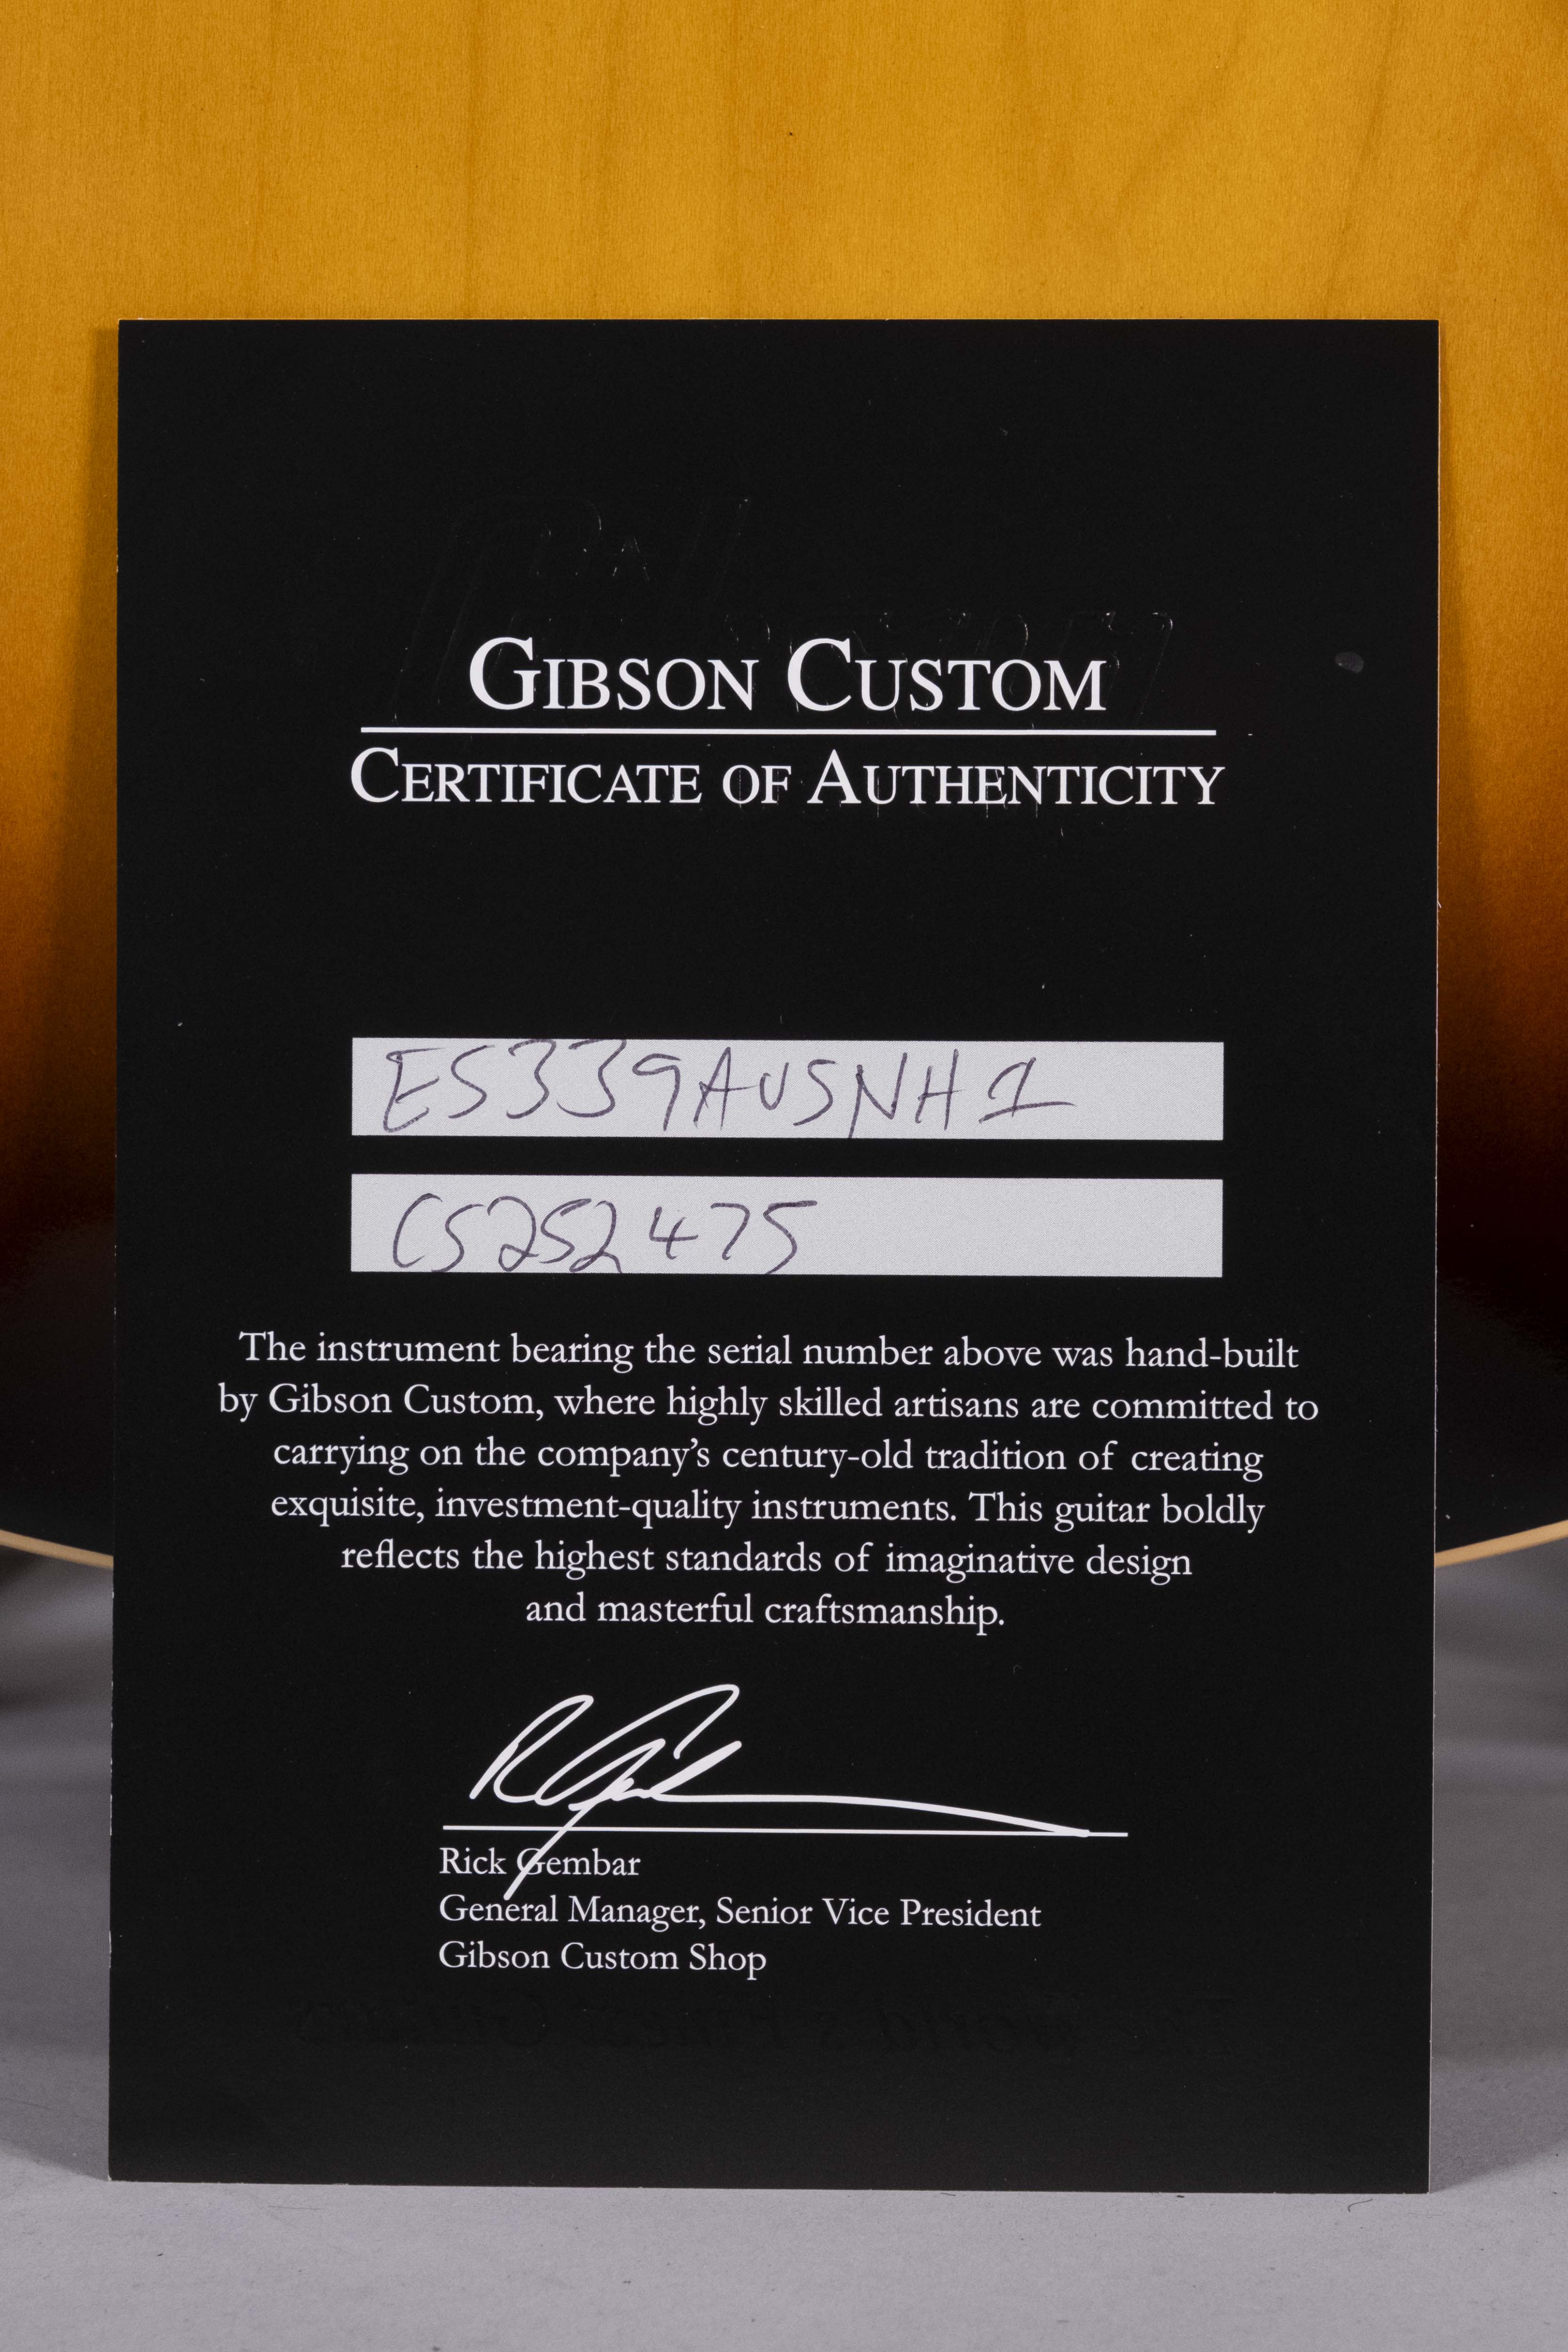 GIBSON CUSTOM
CERTIFICATE OF AUTHENTICITY
ES339AUSNH1
CS252475
The instrument bearing the serial number above was hand-built
by Gibson Custom, where highly skilled artisans are committed to
carrying on the company’s century-old tradition of creating
exquisite, investment-quality instruments. This guitar boldly
reflects the highest standards of imaginative design
and masterful craftsmanship.
Rick Gembar
General Manager, Senior Vice President
Gibson Custom Shop